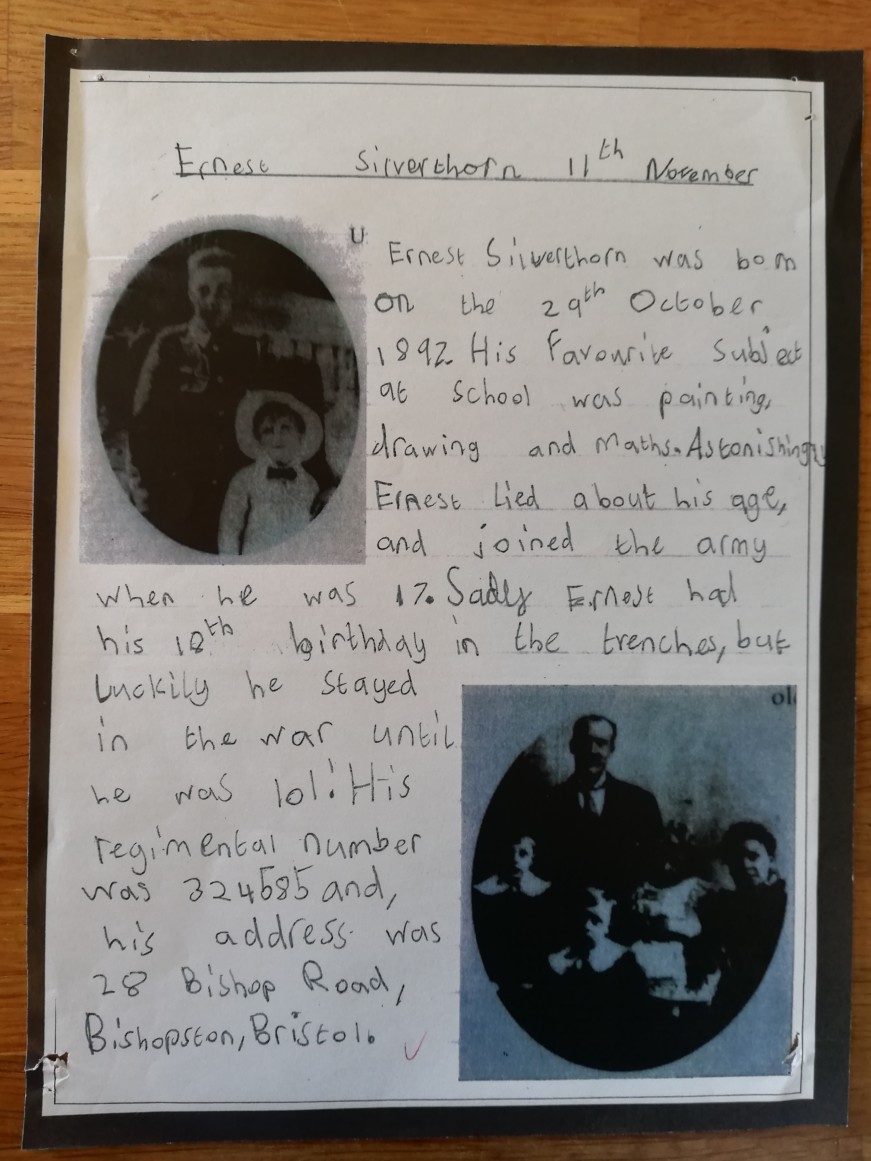 Ernest Silverthorn 11th November
U
Ernest Silverthorn was born
on the 29th October
1892. His favourite subject
at school was painting,
drawing and Maths. Astonishingly
Ernest Lied about his age,
and joined the army
when he was 17. Sadly Ernest had
his 18th birthday in the trenches, but
Luckily he stayed
in the war until
he was 101! His
regimental number
was 324585 and,
his address was
28 Bishop Road,
Bishopston, Bristol.
ol